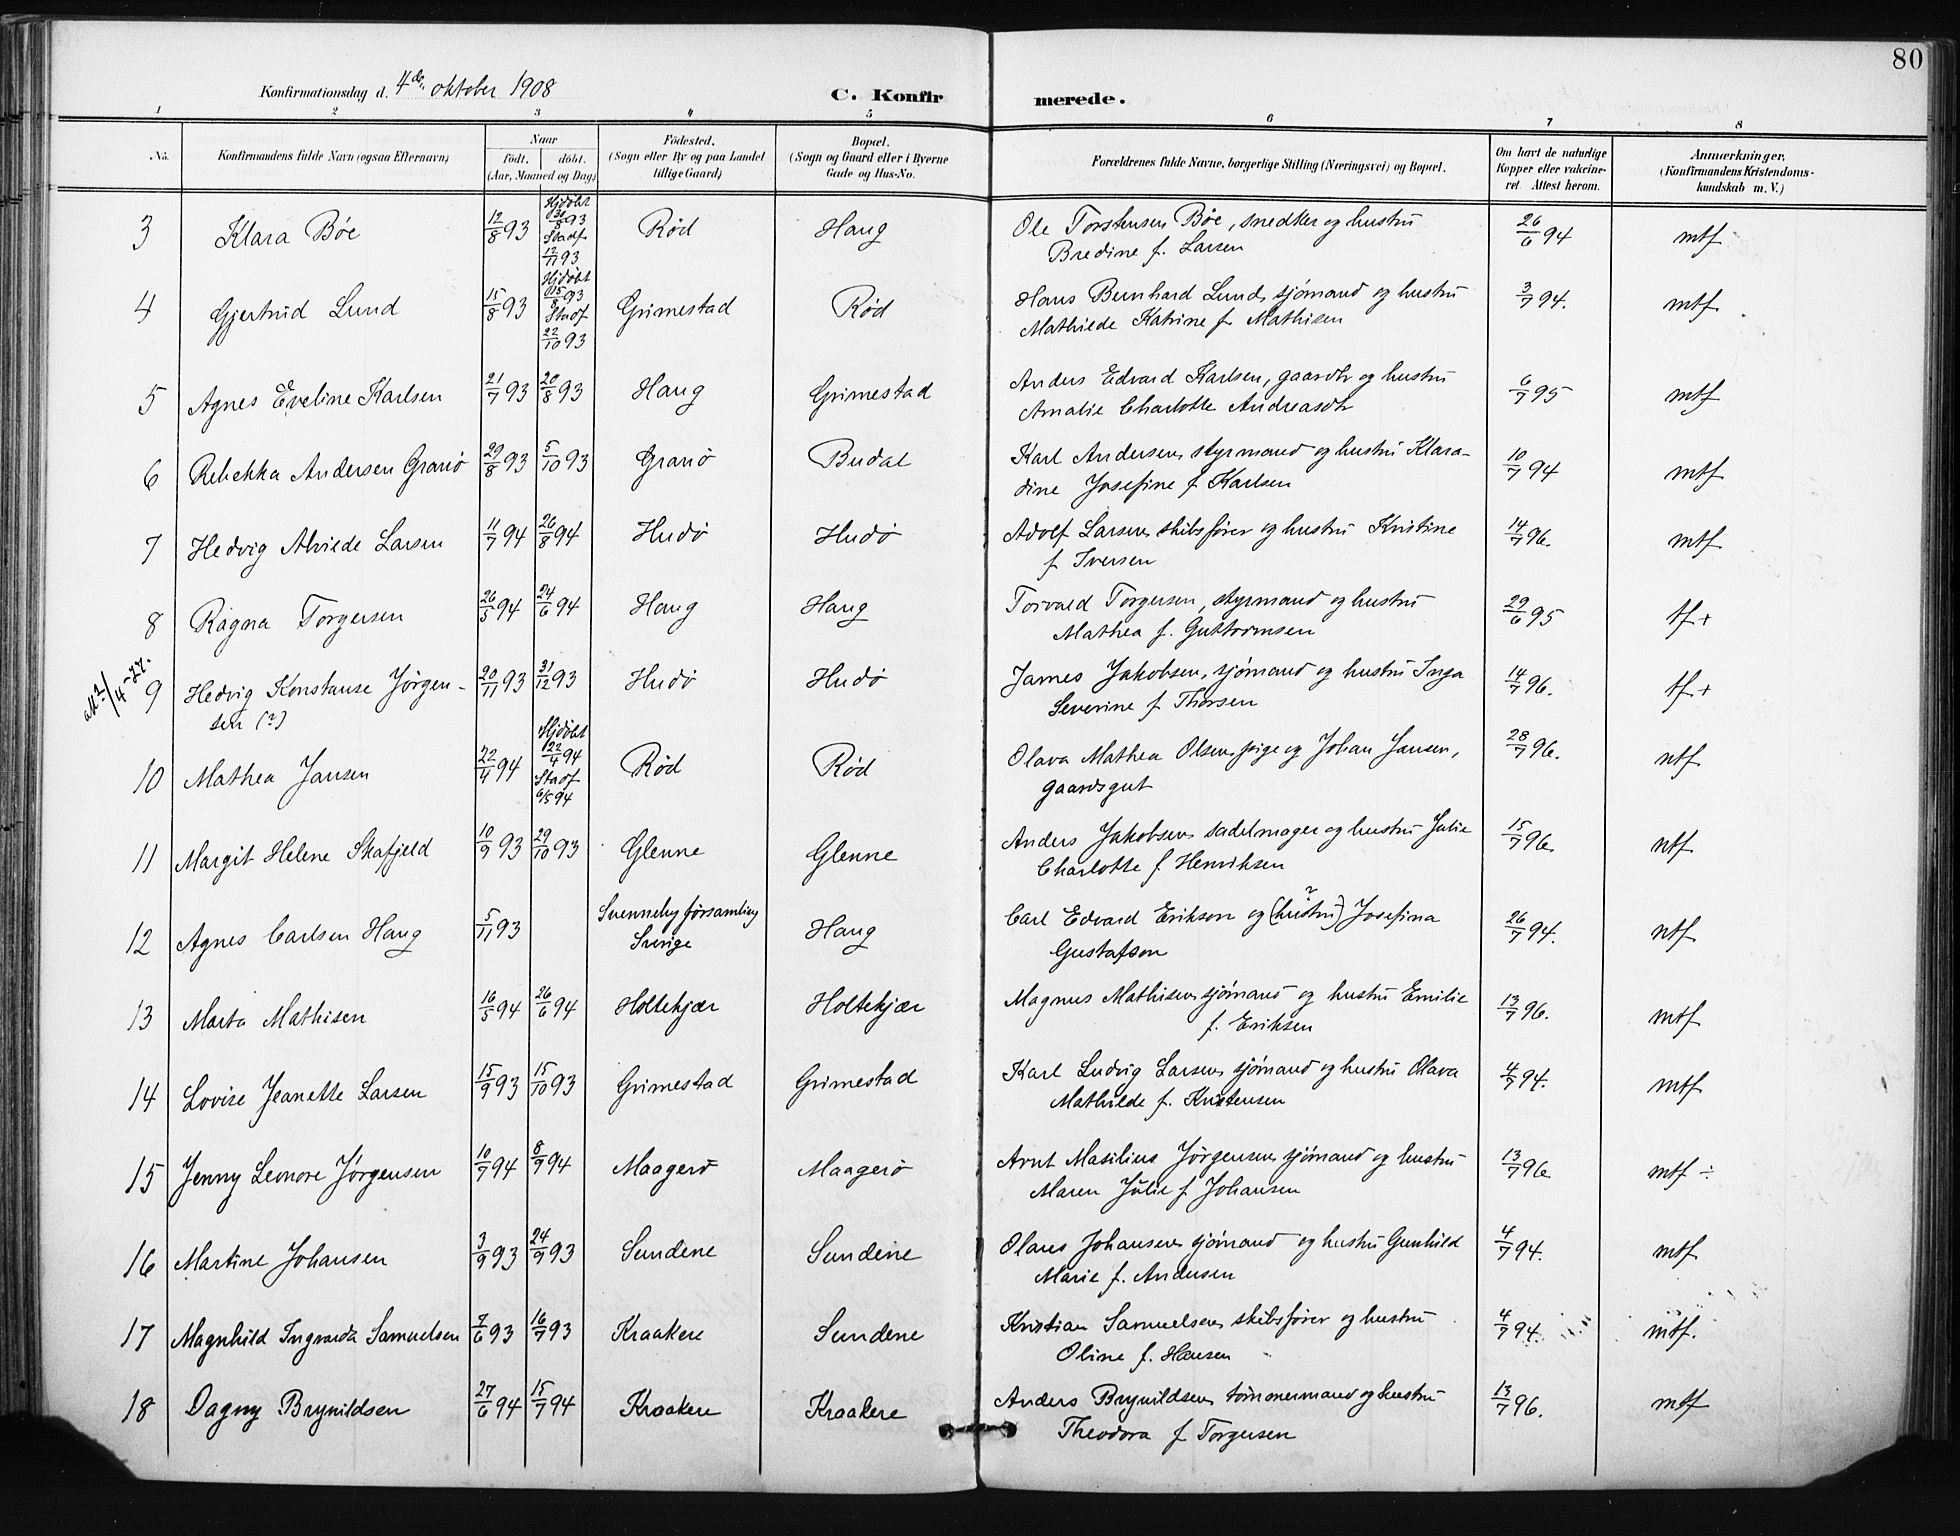 80
Konfirmationsdag d. 4de oktober 1908 C. Konfirmerede.
1 2 3 4 5 6 7 8
No. Konfirmandens fulde Navn (ogsaa Efternavn) Naar født. døbt. (Aar, Maaned og Dag) Fødested. (Sogn eller By og paa Landet tillige Gaard) Bopæl. (Sogn og Gaard eller i Byerne Gade og Hus-No. Forældrenes fulde Navne, borgerlige Stilling (Næringsvei) og Bopæl. Om havt de naturlige Kopper eller vakcineret. Attest herom. Anmærkninger. (Konfirmandens Kristendomskundskab m. V.)
3 Klara Bøe 12/8 93 Hjdøbt 8 93 Stadf 12/11 93 Rød Haug Ole Torstensen Bøe, snedker og hustru 26/6 94 mtf
Bredine f. Larsen
4 Gjertrud Lund 15/8 93 Hjdøbt 15/8 93 Stadf 22/10 93 Grimestad Rød Hans Bernhard Lund, sjømand og hustru 3/7 94. mtf
Mathilde Katrine f. Mathisen
5 Agnes Eveline Karlsen 21/7 93 20/8 93 Haug Grimestad Anders Edvard Karlsen, gaardbr og hustru 6/7 95 mtf
Amalie Charlotte Andreasdtr
6 Rebekka Andersen Granø 29/8 93 5/10 93 Granø Budal Karl Andersen, styrmand og hustru Klara- 10/7 94 mtf
dine Josefine f. Karlsen
7 Hedvig Alvilde Larsen 11/7 94 26/8 94 Hudø Hudø Adolf Larsen, skibsfører og hustru Kristine 14/7 96. mtf
f Iversen
8 Ragna Torgersen 26/5 94 24/6 94 Haug Haug Torvald Torgersen, styrmand og hustru 29/6 95 tf+
Mathea f. Guttormsen
9 Hedvig Konstanse Jørgen- 20/11 93 31/12 93 Hudø Hudø James Jakobsen, sjømand og hustru Inga 14/7 96. tf+
sen (?) Severine f. Thorsen
10 Mathea Jansen 22/4 94 Hjdøbt 22/4 94 Stadf 6/5 94 Rød Rød Olava Mathea Olsen, pige og Johan Jansen, 28/7 96. ntf
gaardsgut
11 Margit Helene Skafjeld 10/9 93 29/10 93 Glenne Glenne Anders Jakobsen, sadelmager og hustru Julie 15/7 96. ntf
Charlotte f. Henriksen
12 Agnes Carlsen Haug 5/11 93 Svenneby församling Sverige Haug Carl Edvard Erikson og (hustru?) Josefina 26/7 94. ntf
Gustafson
13 Marta Mathisen 16/5 94 26/6 94 Holtekjær Holtekjær Magnus Mathisen, sjømand og hustru Emilie 13/7 96. mtf
f. Eriksen
14 Lovise Jeanette Larsen 15/9 93 15/10 93 Grimestad Grimestad Karl Ludvig Larsen, sjømand og hustru Olava 4/7 94. mtf
Mathilde f. Kristensen
15 Jenny Leonore Jørgensen 10/7 94 8/9 94 Maagerø Maagerø Arnt Masilius Jørgensen, sjømand og hustru 13/7 96 mtf ÷
Maren Julie f Johansen
16 Martine Johansen 3/9 93 24/9 93 Sundene Sundene Olaus Johansen, sjømand og hustru Gunhild 4/7 94. mtf
Marie f. Andersen
17 Magnhild Ingvarda Samuelsen 7/6 93 16/7 93 Kraakere Sundene Kristian Samuelsen, skibsfører og hustru 4/7 94. mtf.
Oline f. Hansen
18 Dagny Brynildsen 27/6 94 15/7 94 Kraakere Kraakere Anders Brynildsen, tømmermand og hustru 13/7 96. mtf
Theodora f Torgersen